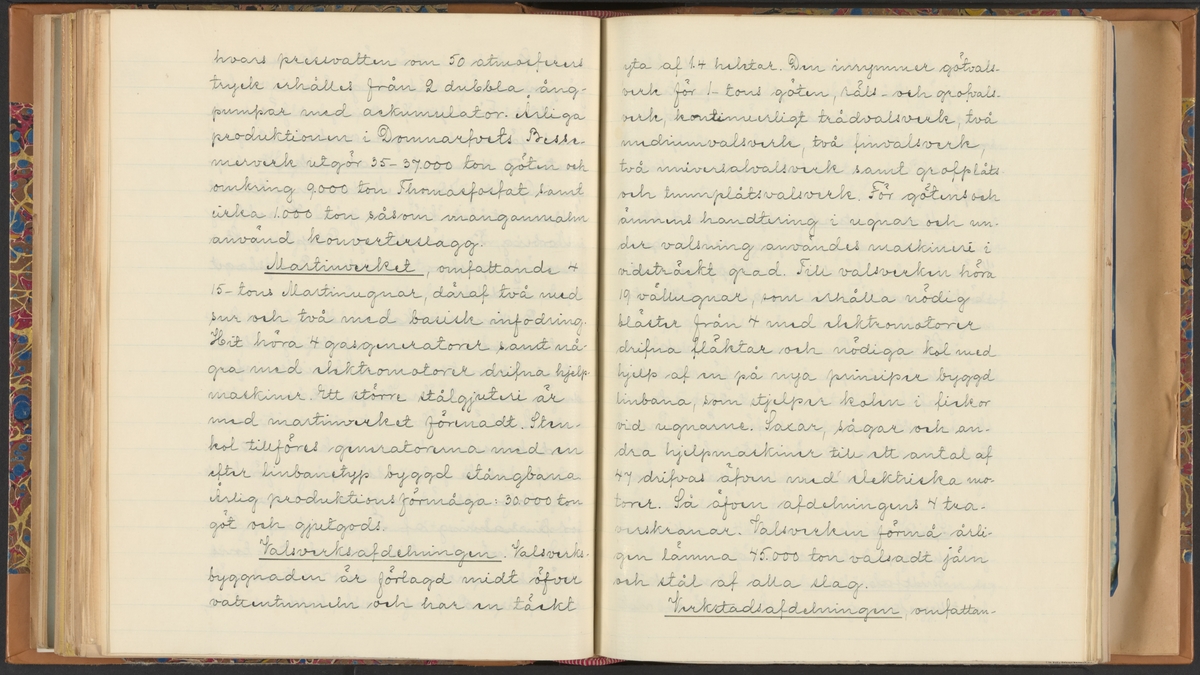 hvars pressvatten om 50 atmosferers
tryck erhålles från 2 dubbla, ång-
pumpar med ackumulator. Årliga
produktionen i Domnarfvets Besse-
merverk utgör 35–37.000 ton göten och
omkring 9.000 ton Thomasfosfat samt
cirka 1.000 ton såsom manganmalm
använd konverterslagg.
Martinverket, omfattande 4
15-tons Martinugnar, däraf två med
sur och två med basisk infodring.
Hit höra 4 gasgeneratorer samt nå-
gra med elektromotorer drifna hjelp-
maskiner. Ett större stålgjuteri är
med martinverket förenadt. Sten-
kol tillföres generatorerna med en
efter linbanetyp byggd stångbana.
Årlig produktionsförmåga: 30.000 ton
göt och gjutgods.
Valsverksafdelningen. Valsverks-
byggnaden är förlagd midt öfver
vattentunneln och har en täckt
yta af 1.4 hektar. Den inrymmer götvals-
verk för 1-tons göten, räls- och grofvals-
verk, kontinuerligt trådvalsverk, två
mediumvalsverk, två finvalsverk,
två universalvalsverk samt grofplåts
och tunnplåtsvalsverk. För götens och
ämnens handtering i ugnar och un-
der valsning användes maskineri i
vidsträckt grad. Till valsverken höra
19 vällugnar, som erhålla nödig
bläster från 4 med elektromotorer
drifna fläktar och nödiga kol med
hjelp af en på nya principer byggd
linbana, som stjelper kolen i fickor
vid ugnarne. Saxar, sågar och an-
dra hjelpmaskiner till ett antal af
47 drifvas äfven med elektriska mo-
torer. Så äfven afdelningens 4 tra-
verskranar. Valsverken förmå årli-
gen lämna 45.000 ton valsadt järn
och stål af alla slag.
Verkstadsafdelningen, omfattan-